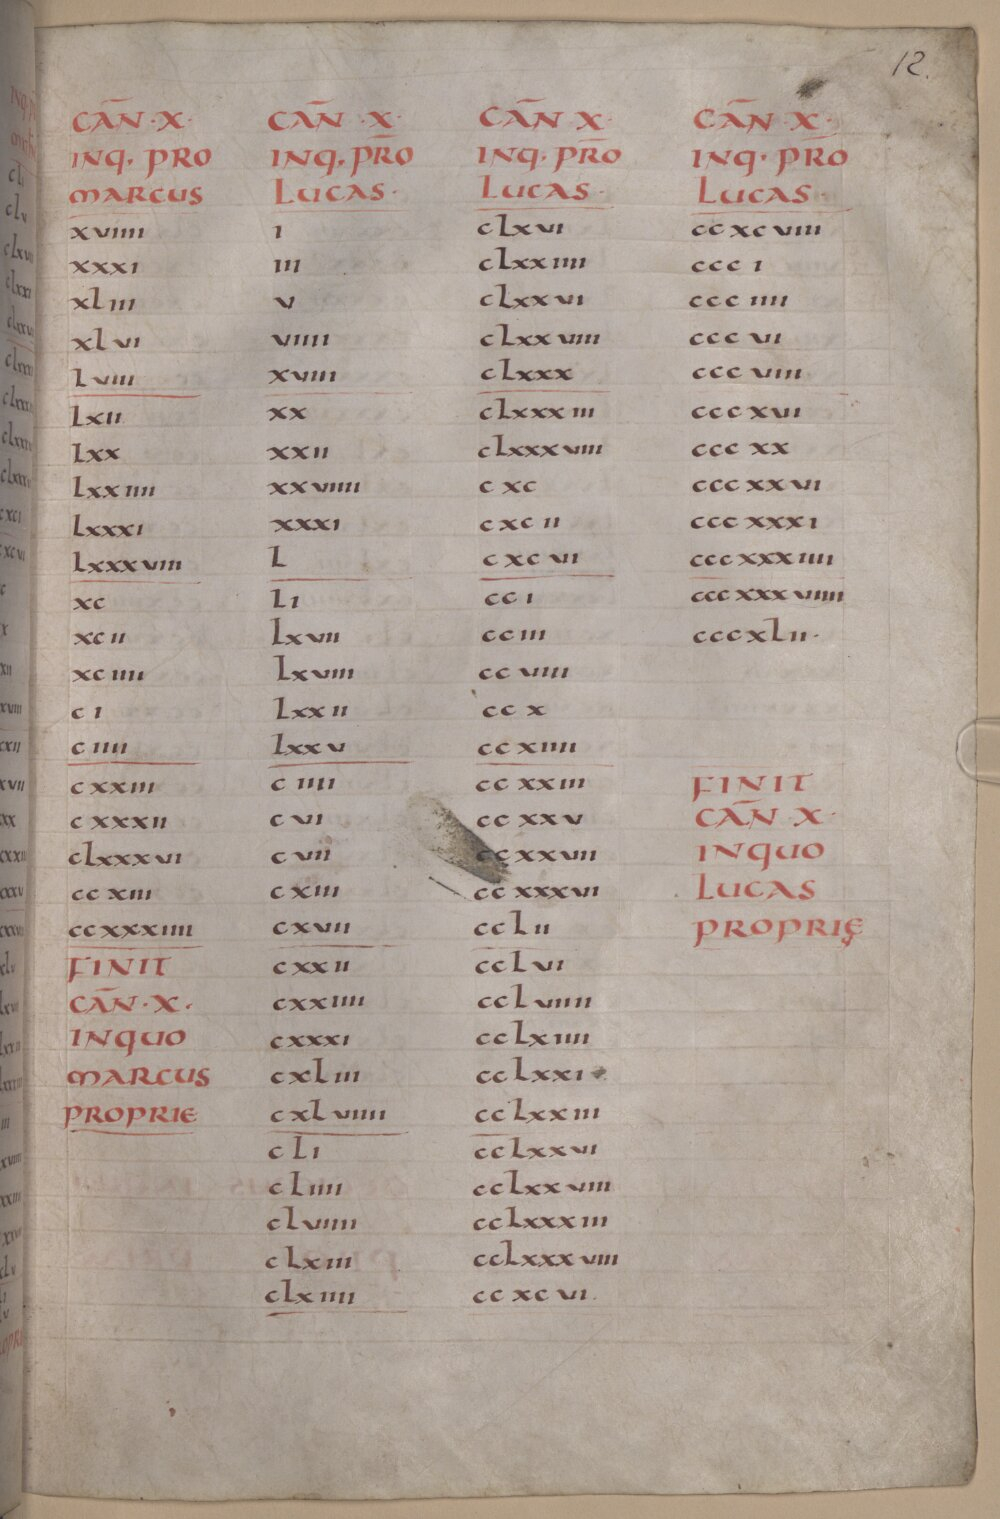 12.
CAN̄·X·
INQ. PRO
MARCUS
xviiii
xxxi
xliii
xlvi
lviii
lxii
lxx
lxxiiii
lxxxi
lxxxviii
xc
xcii
xciiii
ci
ciiii
cxxiii
cxxxii
clxxxvi
ccxiii
ccxxxiiii
FINIT
CAN̄·X·
INQUO
MARCUS
PROPRIE
CAN̄·X·
INQ. PR̄O
LUCAS·
i
iii
v
viiii
xviii
xx
xxii
xxviiii
xxxi
l
li
lxvii
lxviii
lxxii
lxxv
ciiii
cvi
cvii
cxiii
cxvii
cxxii
cxxiiii
cxxxi
cxliii
cxlviiii
cli
cliiii
clviiii
clxiii
clxiiii
CAN̄ X·
INQ· PR̄O
LUCAS·
clxvi
clxxiiii
clxxvi
clxxviii
clxxx
clxxxiii
clxxxviiii
cxc
cxcii
cxcvi
cci
cciii
ccviiii
ccx
ccxiiii
ccxxiii
ccxxv
ccxxvii
ccxxxvi
cclii
cclvi
cclviiii
cclxiiii
cclxxi
cclxxiii
cclxxvi
cclxxviii
cclxxxiii
cclxxxviii
ccxcvi
CAN̄ X·
INQ· PRO
LUCAS·
ccxcviii
ccci
ccciiii
cccvi
cccviii
cccxvi
cccxx
cccxxvi
cccxxxi
cccxxxiiii
cccxxxviiii
cccxlii·
FINIT
CAN̄ X·
INQUO
LUCAS
PROPRIĘ